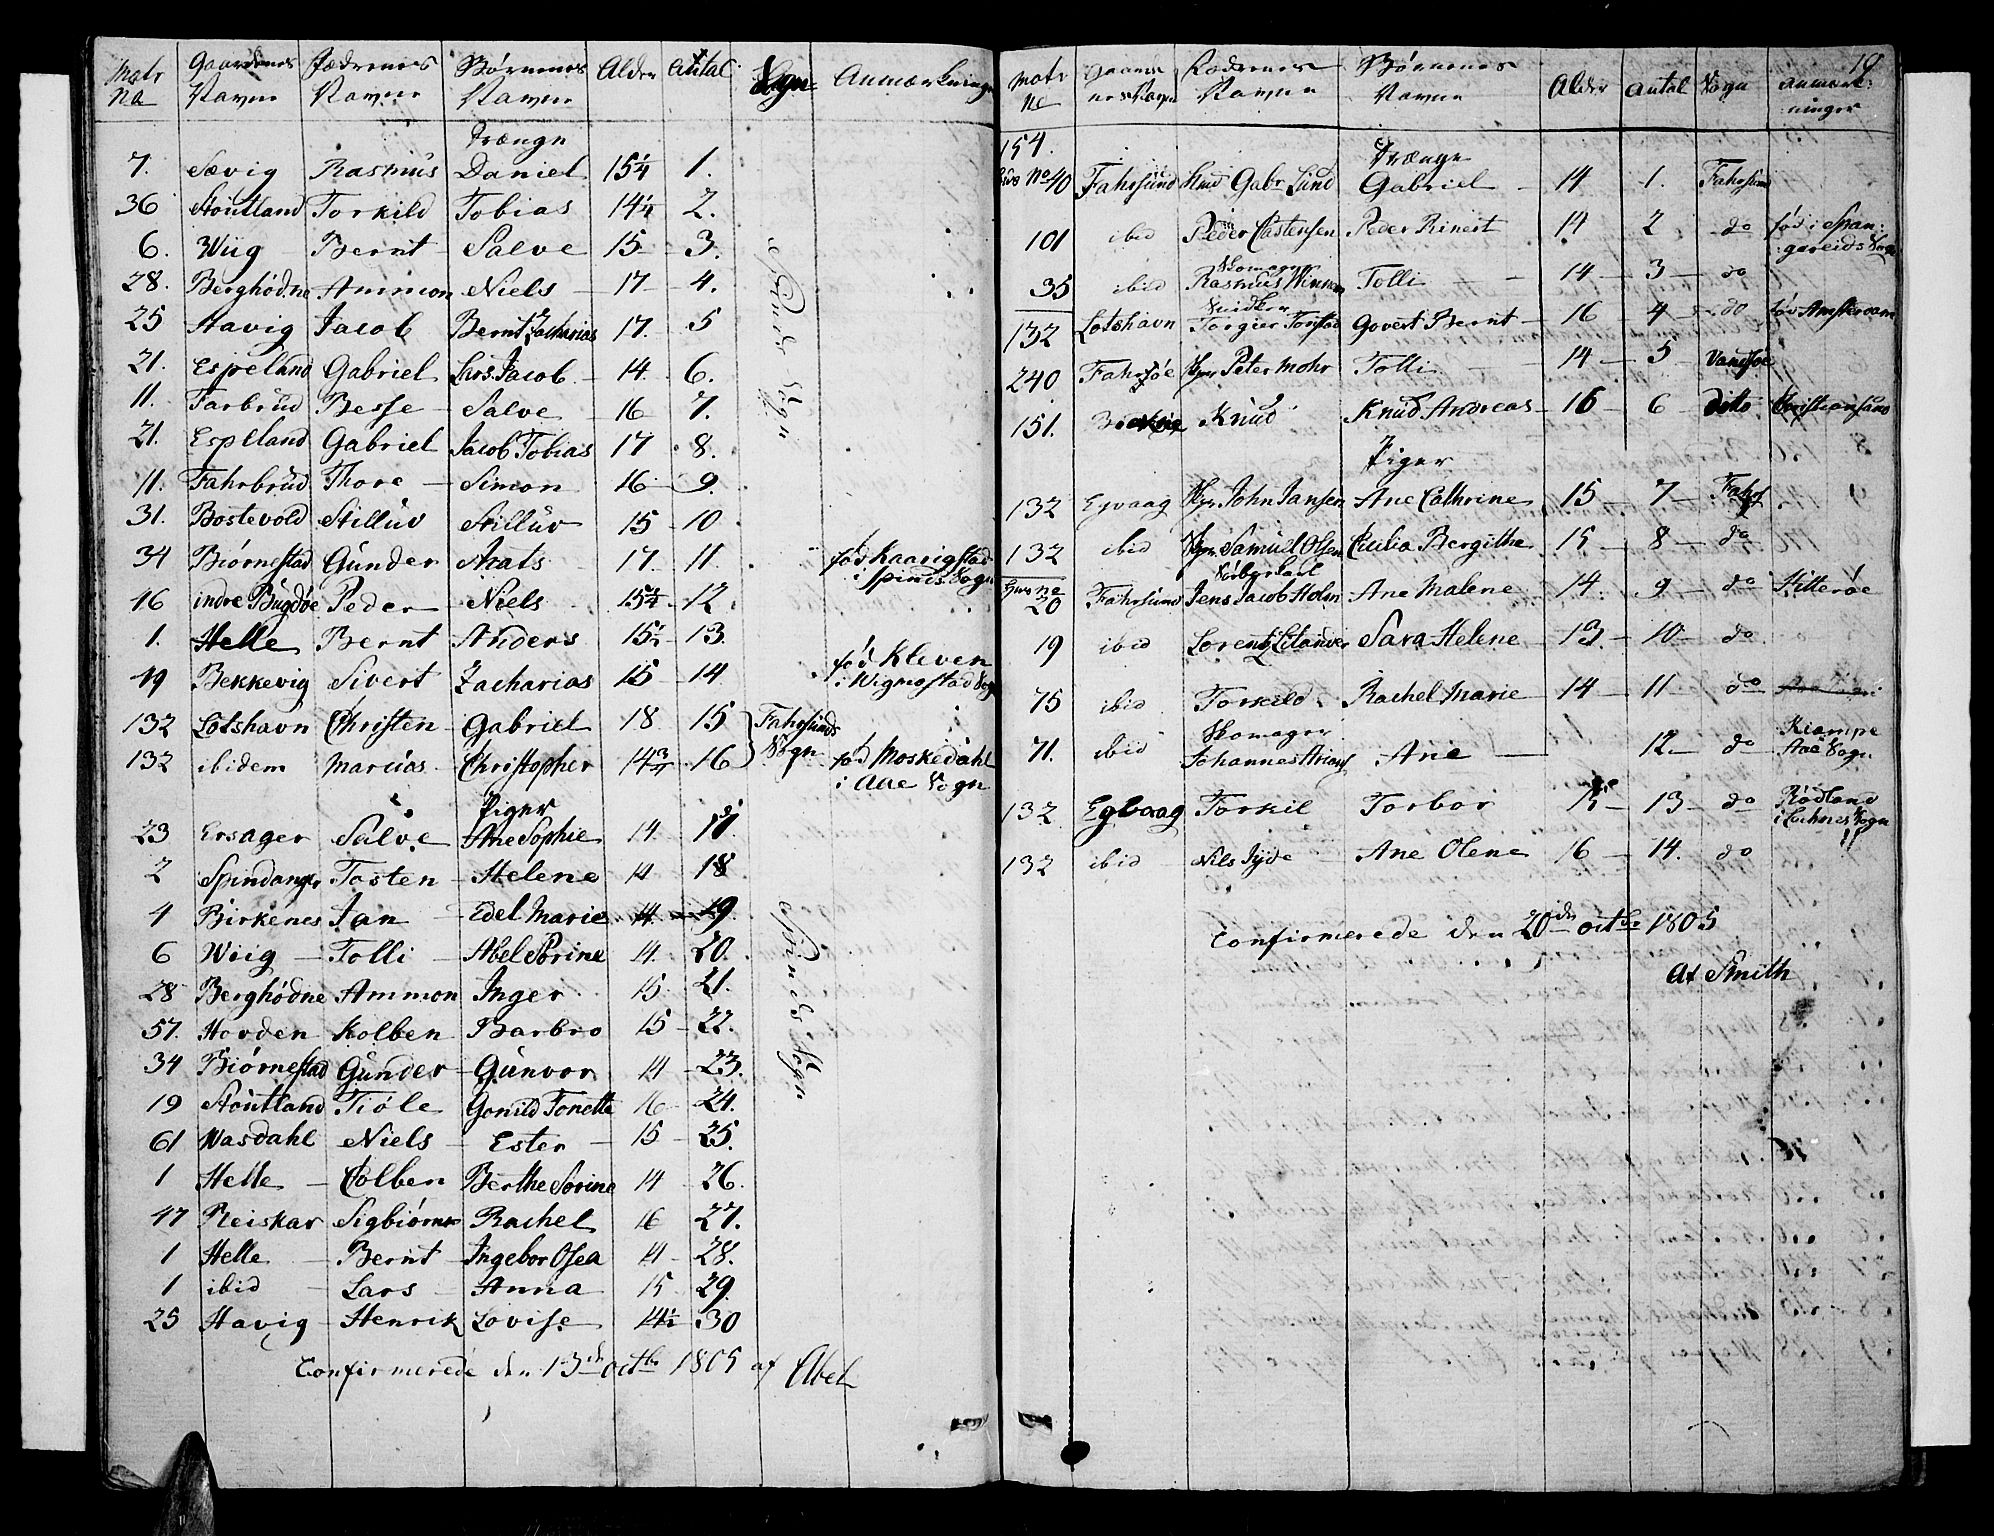 Matr No Gaardenes Navne Fædrenes Navne Børnenes Navne Alder Antal Sogn Anmærkninger
Drænge
7. Sævig Rasmus Daniel 15¼ 1.
36 Stoutland Torkild Tobias 14¼ 2.
6. Wiig Bernt Salve 15 3.
28. Berghødne Ammon Niels 17 4.
25 Havig Jacob Bernt Zacharias 17. 5
21. Espeland Gabriel Lars Jacob 14 6.
11. Farbrud Besse Salve 16 7.
21. Espeland Gabriel Jacob Tobias 17 8.
11. Fahrbrud Thore Simon 16 9.
31. Bostevold Stilluv Stilluv 15 10
34 Biørnestad Gunder Aats 17. 11. fød Kaarigstad i Spinds Sogn
16 indre Bugdøe Peder Niels 15¾ 12
1. Helle Bernt Anders 15½ 13.
49 Bekkevig Sivert Zacharias 15 14 fød Kleven i Wigmostad Sogn
132 Lotshavn Christen Gabriel 18 15 Fahrsunds Sogn
132 ibidem Marcus Christopher 14¾ 16 fød Moskedahl i Aae Sogn
Spinds Sogn
Piger
23 Ersager Salve Ane Sophie 14 17
2 Spindanger Tosten Helene 14 18
4 Birkenes Jan Edel Marie 14 19.
6 Wiig Tolli Abel Sørine 14. 20.
28 Berghødne Ammon Inger 15 21.
57. Horden Kolben Barbro 15 22.
34 Biørnestad Gunder Gunvor 14 23.
19 Stoutland Tiøle Gonild Tonette 16 24.
61 Wasdahl Niels Ester 15 25.
1 Helle Colben Berthe Sørine 14 26.
47 Reiskar Sigbiørn Rachel 16 27.
1 Helle Bernt Ingebor Osea 14 28.
1 ibid Lars Anna 15 29
25 Havig Henrik Lovise 14½ 30
Spinds Sogn
Confirmerede den 13de octbr 1805 af Abel
19
Matr No Gaardenes Navne Fædrenes Navne Børnenes Navne Alder Antal Sogn Anmærkninger
154.
Drænge
No 40 Fahrsund Knud Gabr Lund Gabriel 14 1. Fahrsund
101 ibid Peder Castensen Peder Rinert 14 2 do fød i Spangareids Sogn
35 ibid Skomager Rasmus Tolli 14 3 do
132 Lotshavn Snidker Torgier Torstad Govert Bernt 16 4 do fød Amsterdam
240. Fahrsøe Hr Peter Mohr Tolli 14 5 Vandsøe
151. Knud Knud Andreas 16 6 dito Christiansand
Piger
132 Egvaag Hr John Jansen Ane Cathrine 15 7 Fahrs
132 ibid Hr Samuel Olsen Cicilia Bergitha 15 8 do
Huus No 20 Fahrsund Jens Jacob Holm Ane Malene 14 9 do Hitterøe
19 ibid Lorentz Litander Sara Helene 13 10 do
75 ibid Torkild Rachel Marie 14 11 do
71. ibid Skomager Johannes Ane 12 do Kiampe Aae Sogn
132 Egvaag Torkil Torbor 15 13 do Rødland i Sogn
132 ibid Nils Jyde Ane Olene 16 14. do
Confirmerede den 20de octbr 1805
Af Smith